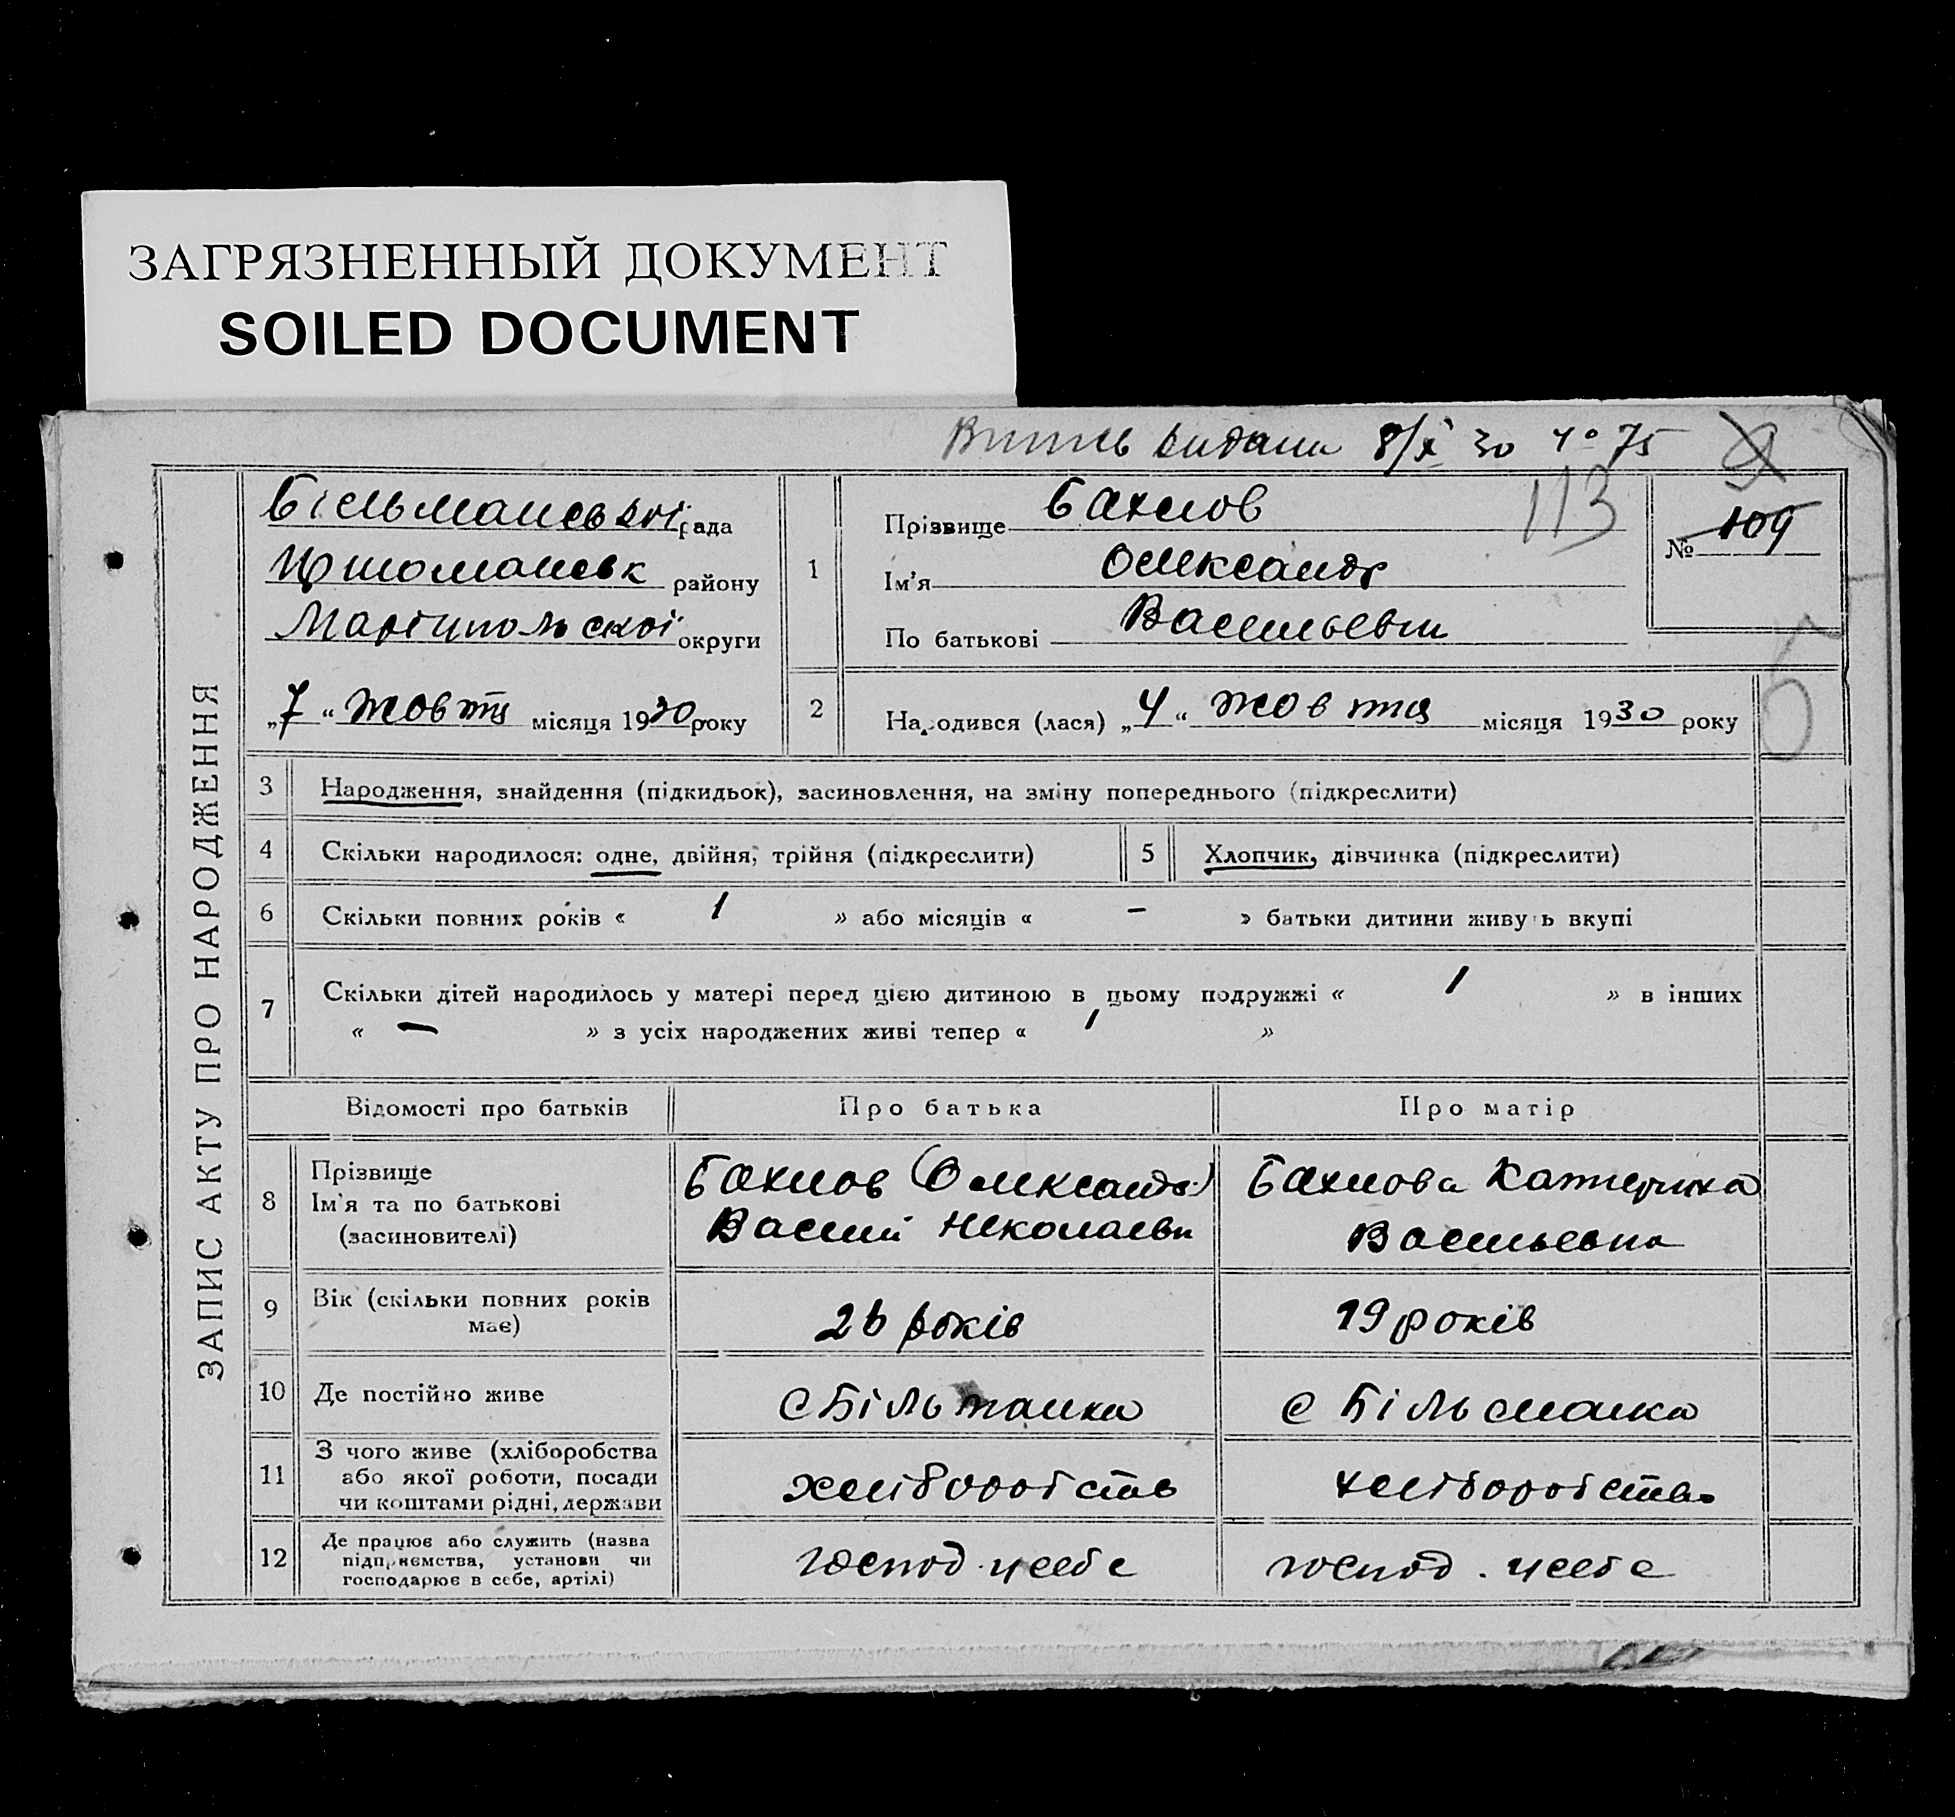 ЗАГРЯЗНЕННЫЙ ДОКУМЕНТ
SOILED DOCUMENT
8/X 30 75
113
Більманської рада
району
Маріупольської округи
„7“ жовтня місяця 1930 року
1
Прізвище Бахлов
Ім’я Олександр
По батькові Васильевич
№ 109
2
Народився (лася) „4“ жовтня місяця 1930 року
ЗАПИС АКТУ ПРО НАРОДЖЕННЯ
3 Народження, знайдення (підкидьок), засиновлення, на зміну попереднього (підкреслити)
4 Скільки народилося: одне, двійня, трійня (підкреслити) 5 Хлопчик, дівчинка (підкреслити)
6 Скільки повних років « 1 » або місяців « – » батьки дитини живуть вкупі
7 Скільки дітей народилось у матері перед цією дитиною в цьому подружжі « 1 » в інших
« — » з усіх народжених живі тепер « 1 »
Відомості про батьків Про батька Про матір
8 Прізвище
Ім’я та по батькові
(засиновителі)
Бахлов (Олександр)
Василий Николаеви
Бахлова Катерина
Васильевна
9 Вік (скільки повних років
має)
26 років
19 років
10 Де постійно живе
с Більманка
с Більманка
11 З чого живе (хліборобства
або якої роботи, посади
чи коштами рідні, держави
хліборобств
хліборобство
12 Де працює або служить (назва
підприємства, установи чи
господарює в себе, артілі)
господ. у себе
господ. у себе